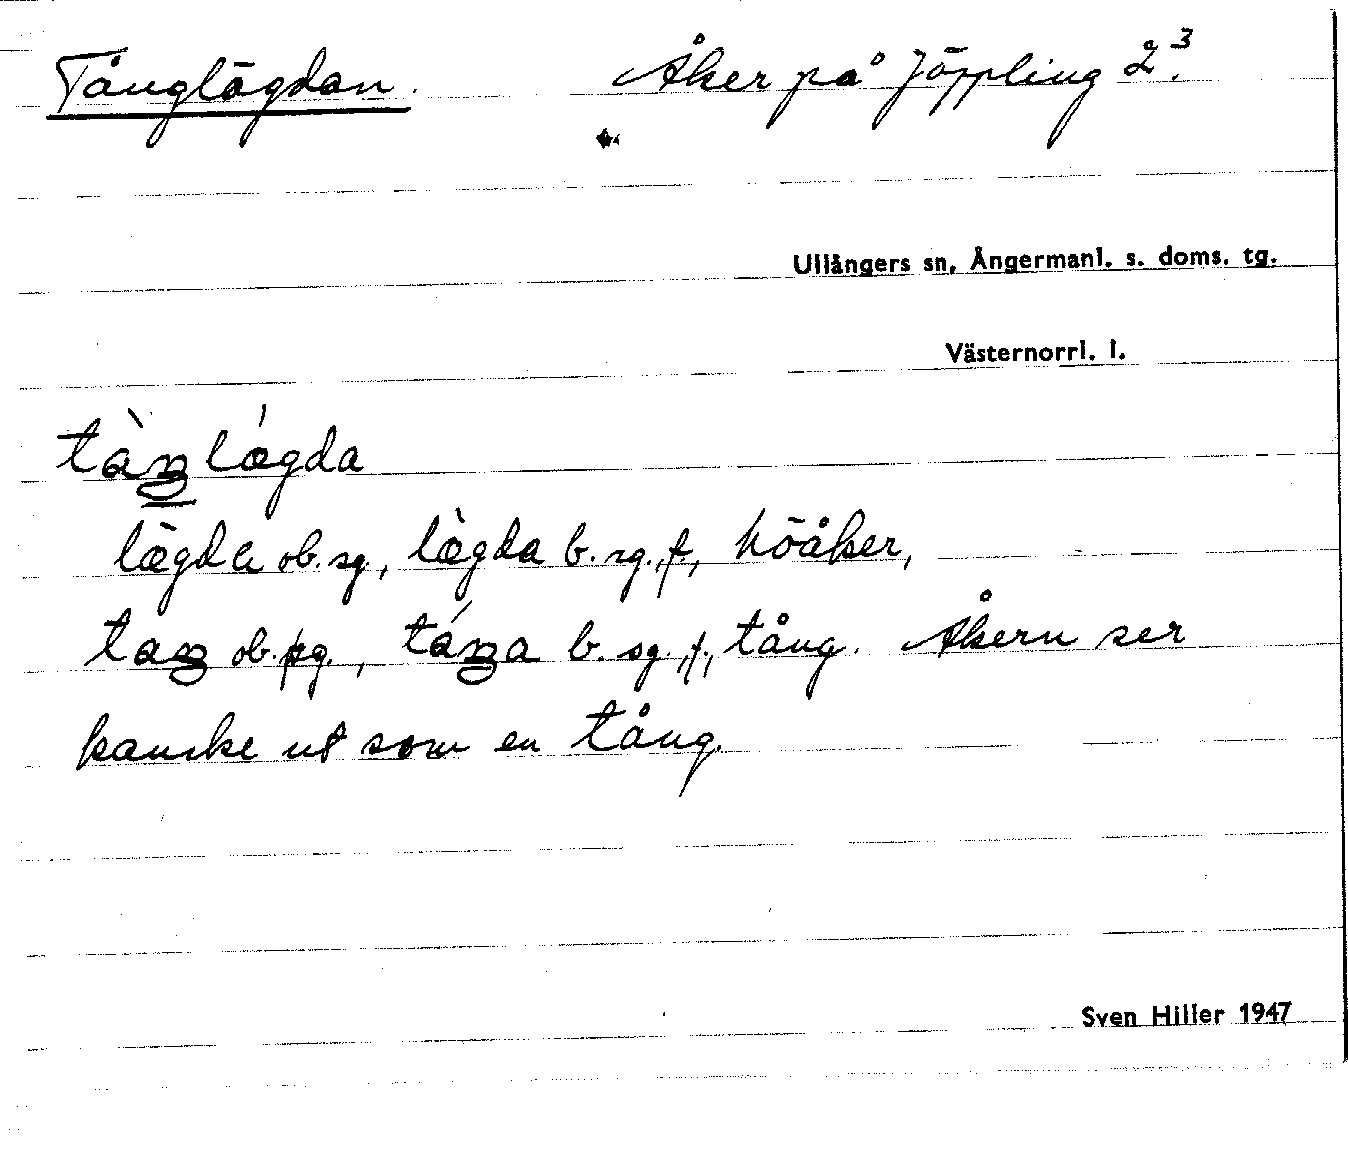 Tånglägdan. Åker på Jöppling 2³.
Ullångers sn, Ångermanl. s. doms. tg.
Västernorrl. l.
tàŋlǽgda
lægda ob. sg., læ̀gda b. sg., f., höåker,
taŋ ob. sg., táŋa b. sg., f., tång. Åkern ser
kanske ut som en tång.
Sven Hiller 1947